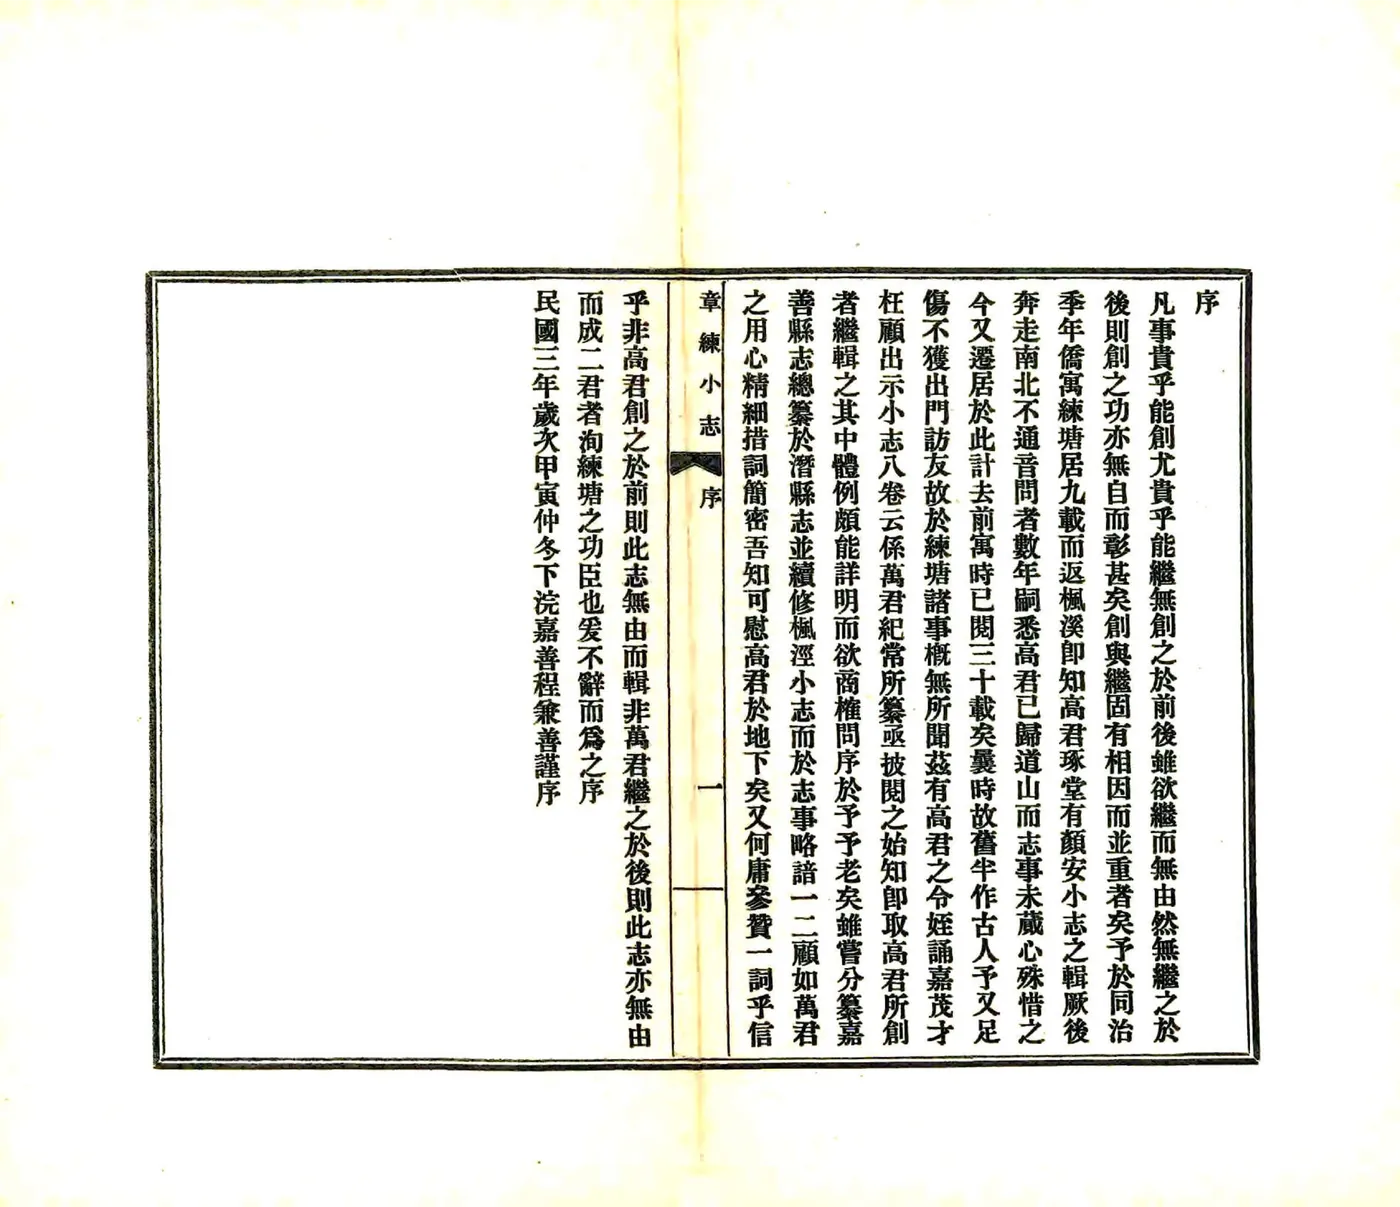 序
凡事貴乎能創尤貴乎能繼無創之於前後雖欲繼而無由然無繼之於
後則創之功亦無自而彰甚矣創與繼固有相因而並重者矣予於同治
季年僑寓練塘居九載而返楓溪卽知高君琢堂有顏安小志之輯厥後
奔走南北不通音問者數年嗣悉高君已歸道山而志事未蕆心殊惜之
今又遷居於此計去前寓時已閱三十載矣曩時故舊半作古人予又足
傷不獲出門訪友故於練塘諸事槪無所聞茲有高君之令姪誦嘉茂才
枉顧出示小志八卷云係萬君紀常所纂亟披閱之始知卽取高君所創
者繼輯之其中體例頗能詳明而欲商榷問序於予予老矣雖嘗分纂嘉
善縣志總纂於潛縣志並續修楓涇小志而於志事略諳一二顧如萬君
之用心精細措詞簡密吾知可慰高君於地下矣又何庸參贊一詞乎信
章練小志 序 一
乎非高君創之於前則此志無由而輯非萬君繼之於後則此志亦無由
而成二君者洵練塘之功臣也爰不辭而爲之序
民國三年歲次甲寅仲冬下浣嘉善程兼善謹序